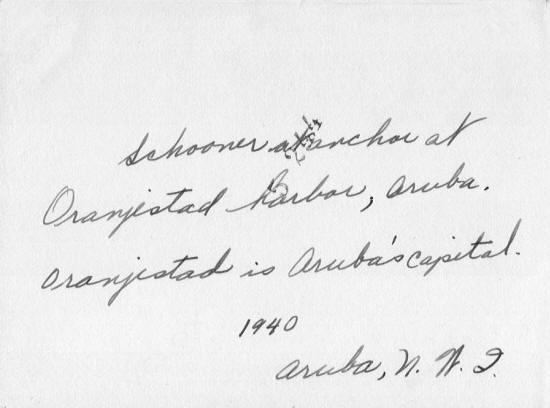 Schooner at anchor at
Oranjestad harbor, Aruba.
Oranjestad is Aruba's capital.
1940
Aruba, N. W. I.